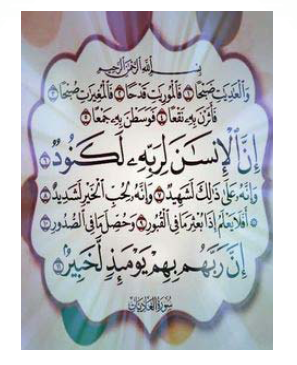 بِسْمِ اللَّهِ الرَّحْمَٰنِ الرَّحِيمِ
وَالْعَادِيَاتِ ضَبْحًا ١ فَالْمُورِيَاتِ قَدْحًا ٢ فَالْمُغِيرَاتِ صُبْحًا ٣
فَأَثَرْنَ بِهِ نَقْعًا ٤ فَوَسَطْنَ بِهِ جَمْعًا ٥
إِنَّ الْإِنسَانَ لِرَبِّهِ لَكَنُودٌ ٦
وَإِنَّهُ عَلَىٰ ذَٰلِكَ لَشَهِيدٌ ٧ وَإِنَّهُ لِحُبِّ الْخَيْرِ لَشَدِيدٌ ٨
أَفَلَا يَعْلَمُ إِذَا بُعْثِرَ مَا فِي الْقُبُورِ ٩ وَحُصِّلَ مَا فِي الصُّدُورِ ١٠
إِنَّ رَبَّهُم بِهِمْ يَوْمَئِذٍ لَّخَبِيرٌ ١١
سُورَةُ الْعَادِيَاتِ